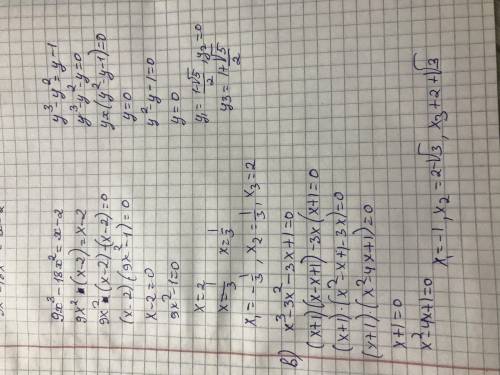 9x³-18x²=x-2
9x²(x-2)=x-2
9x²(x-2)-(x-2)=0
(x-2)(9x²-1)=0
x-2=0
9x²-1=0
x=2
x=-1/3 x=1/3
x₁=-1/3, x₂=1/3, x₃=2
y³-y²=y-1
y³-y²-y=0
yx(y²-y-1)=0
y=0
y²y-1=0
y=0
y₁=1-√5/2, y₂=0
y₃=1+√5/2
в) x³-3x²-3x+1=0
(x+1)·(x-x+1)-3x(x+1)=0
(x+1)·(x²-x+1-3x)=0
(x+1)·(x²-4x+1)=0
x+1=0
x²-4x+1=0
x₁=-1, x₂=2-√3, x₃+2+√3